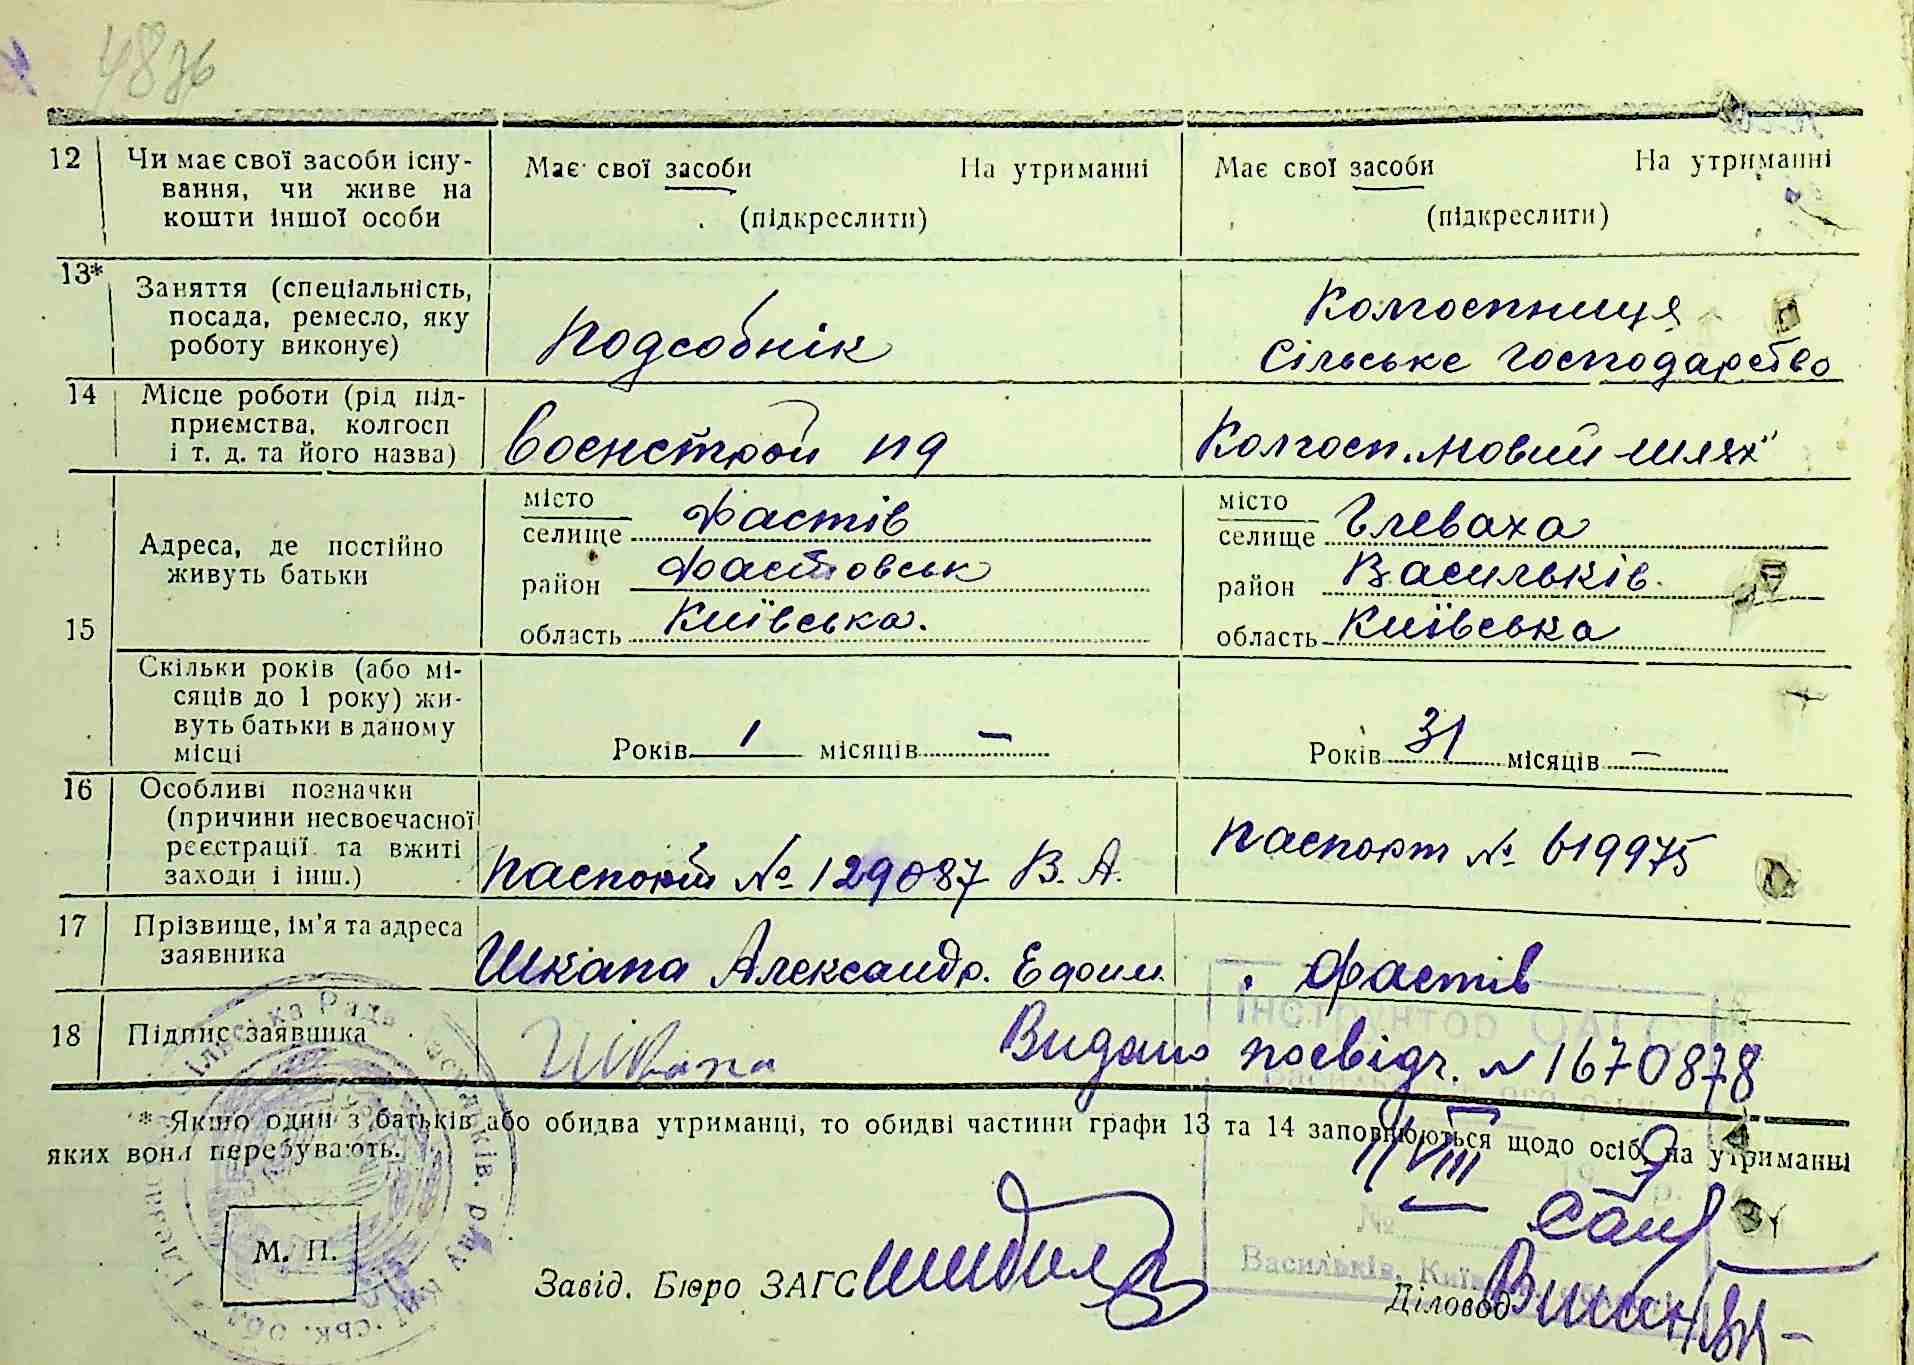 4836
12 Чи має свої засоби існу- Має свої засоби На утриманні Має свої засоби На утриманні
вання, чи живе на
кошти іншої особи (підкреслити) (підкреслити)
13* Заняття (спеціальність, Колгоспниця
посада, ремесло, яку Подсобнік Сільське господарство
роботу виконує)
14 Місце роботи (рід під-
приємства, колгосп Воєнстрой Колгосп „Новий шлях"
і т. д. та його назва)
місто Фастів місто Глеваха
селище селище
Адреса, де постійно район Фастовськ район Васильків.
живуть батьки
15 область Київська. область Київська
Скільки років (або мі-
сяців до 1 року) жи-
вуть батьки в даному Років 1 місяців – Років 31 місяців –
місці
16 Особливі позначки
(причини несвоєчасної
реєстрації та вжиті Паспорт № 619975
заходи і інш.) Паспорт № 129087 В. А.
17 Прізвище, ім'я та адреса
заявника Шкапа Александр. Ефим. Фастів
18 Підпис заявника Шкапа Видано посвідч. № 1670878
Інструктор ОАГС
* Якщо один з батьків або обидва утриманці, то обидві частини графи 13 та 14 заповнюються щодо осіб, на утриманні
яких вони перебувають.
VIII
№
Васильків, Київ
М. П.
Завід. Бюро ЗАГС
Діловод